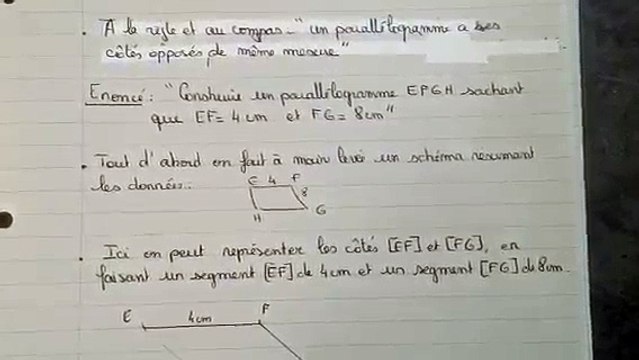 . A la règle et au compas - "un parallélogramme a ses
côtés opposés de même mesure"
Enoncé : "Construire un parallélogramme EFGH sachant
que EF = 4 cm et FG = 8 cm"
. Tout d'abord on fait à main levée un schéma résumant
les données :
E 4 F
8
H G
. Ici on peut représenter les côtés [EF] et [FG], en
faisant un segment [EF] de 4 cm et un segment [FG] de 8 cm.
E 4 cm F